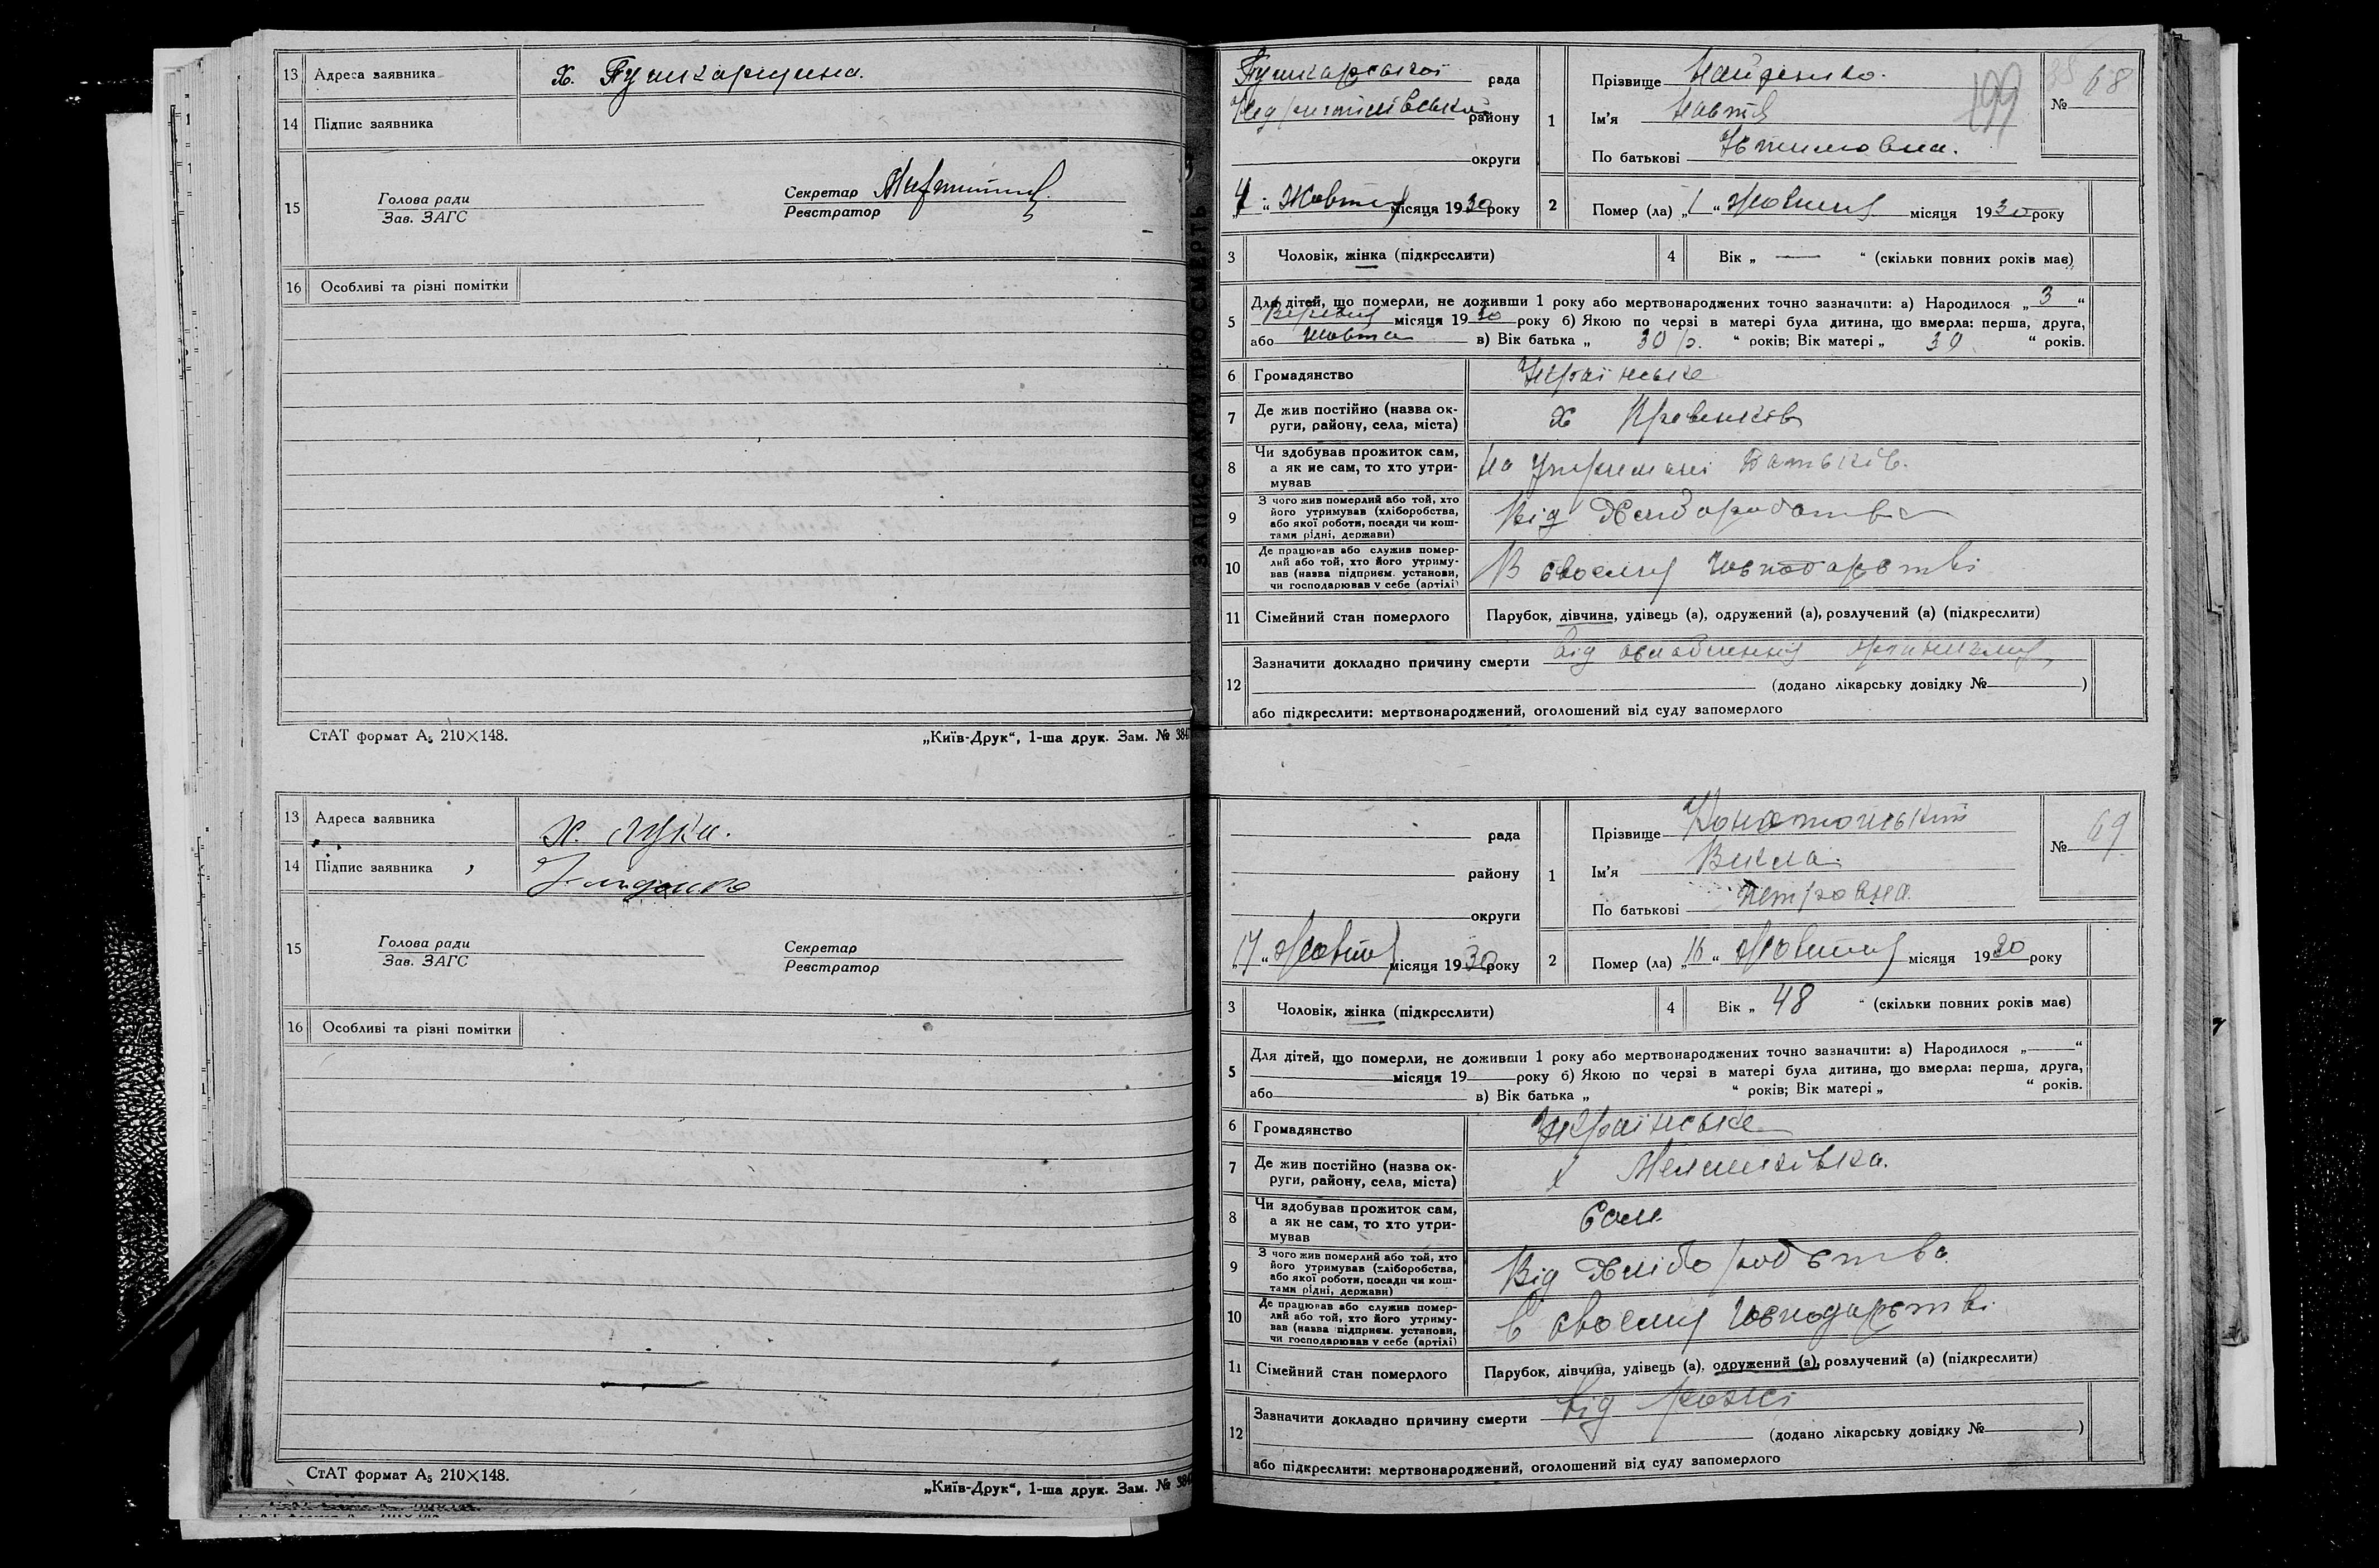 13 Адреса заявника Х. Пушкарщина.
14 Підпис заявника
15 Голова ради
Зав. ЗАГС
Секретар
Реєстратор
16 Особливі та різні помітки
СтАТ формат А₅ 210×148.
„Київ-Друк“, 1-ша друк. Зам. № 384
13 Адреса заявника х. Луки.
14 Підпис заявника
15 Голова ради
Зав. ЗАГС
Секретар
Реєстратор
16 Особливі та різні помітки
СтАТ формат А₅ 210×148.
„Київ-Друк“, 1-ша друк. Зам. № 384
ЗАПИС АКТУ ПРО СМЕРТЬ
Пушкарської рада
району
округи
4 “ Жовтня місяця 1930 року
1 Прізвище Найденко.
Ім’я
По батькові
199
№ 68
2 Помер (ла) „1“ Жовтня місяця 1930 року
3 Чоловік, жінка (підкреслити)
4 Вік „ — “ (скільки повних років має)
5 Для дітей, що померли, не доживши 1 року або мертвонароджених точно зазначити: а) Народилося „3“
Вересня місяця 1930 року б) Якою по черзі в матері була дитина, що вмерла: перша, друга,
або в) Вік батька „ 30 р. “ років; Вік матері „ 30 “ років.
6 Громадянство Українське
7 Де жив постійно (назва ок-
руги, району, села, міста) х
8 Чи здобував прожиток сам,
а як не сам, то хто утри-
мував На Утриманні Батьків.
9 З чого жив померлий або той, хто
його утримував (хліборобства,
або якої роботи, посади чи кош-
тами рідні, держави) Від Хліборобства
10 Де працював або служив помер-
лий або той, хто його утриму-
вав (назва підприєм. установи,
чи господарював у себе (артілі) В своєму господарстві
11 Сімейний стан померлого Парубок, дівчина, удівець (а), одружений (а), розлучений (а) (підкреслити)
12 Зазначити докладно причину смерти від
(додано лікарську довідку № )
або підкреслити: мертвонароджений, оголошений від суду запомерлого
рада
району
округи
„17“ Жовтня місяця 1930 року
1 Прізвище
Ім’я
По батькові Петровна.
№ 69
2 Помер (ла) „16“ Жовтня місяця 1930 року
3 Чоловік, жінка (підкреслити)
4 Вік „ 48 “ (скільки повних років має)
5 Для дітей, що померли, не доживши 1 року або мертвонароджених точно зазначити: а) Народилося „ “
місяця 19 року б) Якою по черзі в матері була дитина, що вмерла: перша, друга,
або в) Вік батька „ “ років; Вік матері „ “ років.
6 Громадянство Українське
7 Де жив постійно (назва ок-
руги, району, села, міста) х
8 Чи здобував прожиток сам,
а як не сам, то хто утри-
мував Сам
9 З чого жив померлий або той, хто
його утримував (хліборобства,
або якої роботи, посади чи кош-
тами рідні, держави) Від Хліборобства
10 Де працював або служив помер-
лий або той, хто його утриму-
вав (назва підприєм. установи,
чи господарював у себе (артілі) В своєму господарстві
11 Сімейний стан померлого Парубок, дівчина, удівець (а), одружений (а), розлучений (а) (підкреслити)
12 Зазначити докладно причину смерти від рожі
(додано лікарську довідку № )
або підкреслити: мертвонароджений, оголошений від суду запомерлого